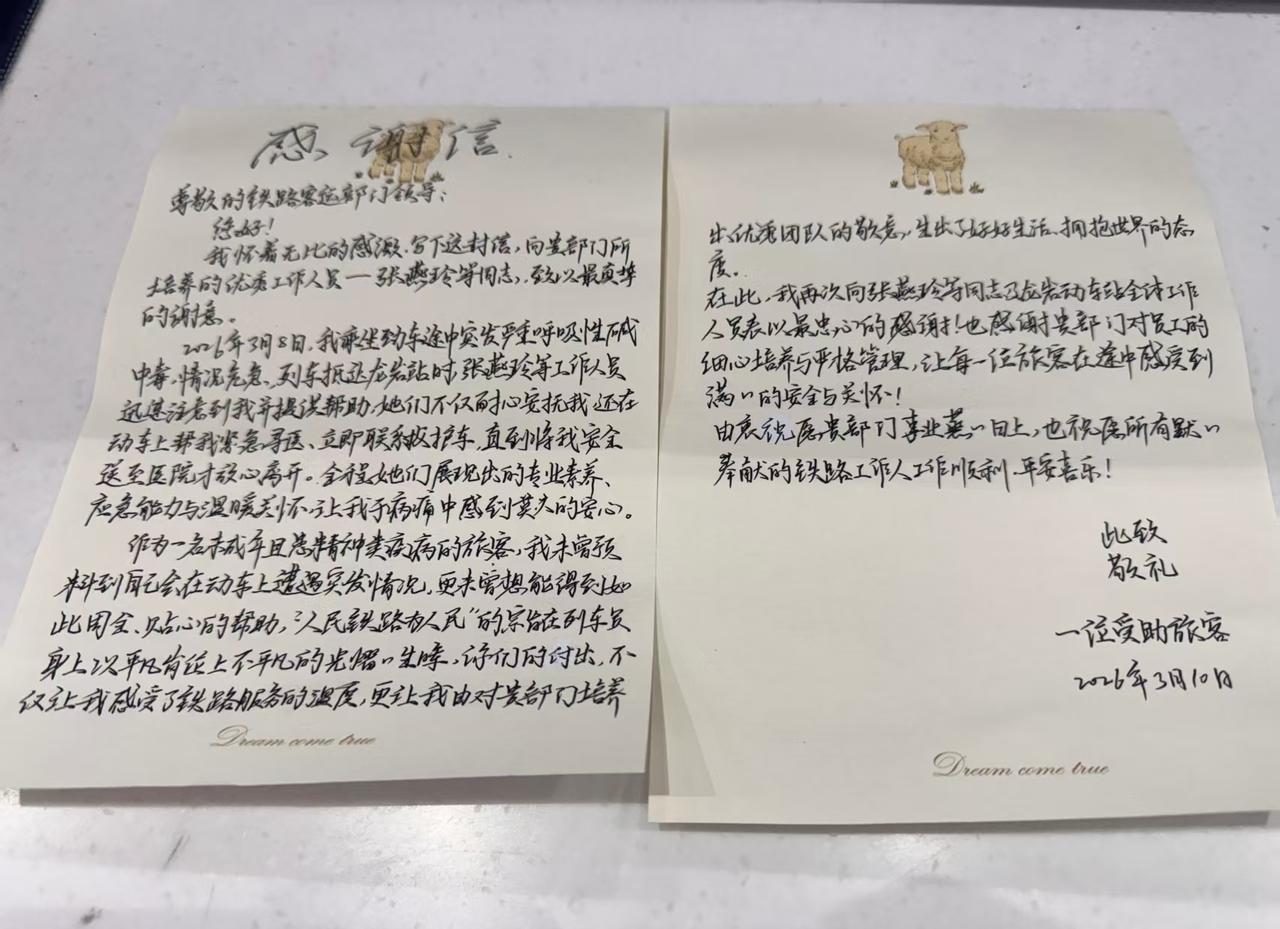 感谢信
尊敬的铁路客运部门领导:
您好!
我怀着无比的感激,写下这封信,向贵部门所
培养的优秀工作人员——张燕玲等同志,致以最真挚
的谢意。
2026年3月8日,我乘坐动车途中突发严重呼吸性碱
中毒,情况危急。列车抵达龙岩站时,张燕玲等工作人员
迅速注意到我并提供帮助,她们不仅耐心安抚我,还在
动车上帮我紧急寻医、立即联系救护车,直到将我安全
送至医院才放心离开。全程她们展现出的专业素养、
应急能力与温暖关怀,让我于病痛中感到莫大的安心。
作为一名未成年且患精神类疾病的旅客,我未曾预
料到自己会在动车上遭遇突发情况,更未曾想能得到如
此周全、贴心的帮助,“人民铁路为人民”的宗旨在列车员
身上以平凡岗位上不平凡的光熠〃生辉,你们的付出,不
仅让我感受了铁路服务的温度,更让我由对贵部门培养
Dream come true
出优秀团队的敬意,生出了好好生活、拥抱世界的态
度。
在此,我再次向张燕玲等同志及龙岩动车站全体工作
人员表以最忠心的感谢!也感谢贵部门对员工的
细心培养与严格管理,让每一位旅客在途中感受到
满〃的安全与关怀!
由衷祝愿贵部门事业蒸〃日上,也祝愿所有默〃
奉献的铁路工作人工作顺利、平安喜乐!
此致
敬礼
一位受助旅客
2026年3月10日
Dream come true